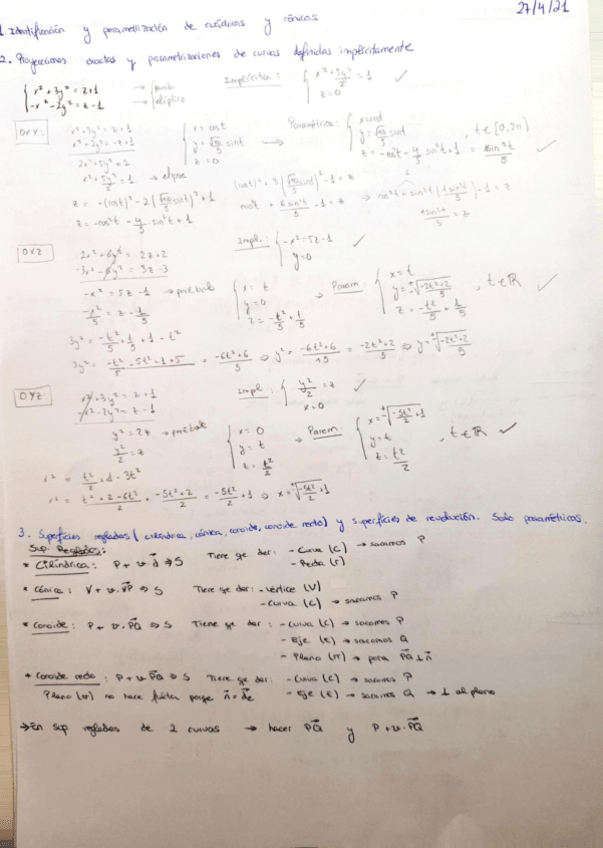 27/4/21
1. Identificación y parametrización de cuádricas y cónicas
2. Proyecciones exactas y parametrizaciones de curvas definidas implícitamente
{ x² + 3y² = z+1 → parab.
{ -x² - 2y² = z-1 elíptico
Implícita: { x² + 5y²/2 = 1
{ z=0 ✓
OXY: x² + 3y² = z+1
x² + 2y² = -z+1
2x² + 5y² = 2
x² + 5y²/2 = 1 → elipse
{ x = cost
{ y = √10/5 sint
{ z = 0
→ Paramétrica: { x = cost
{ y = √10/5 sint , t ∈ [0, 2π)
{ z = -cos²t - 4/5 sin²t + 1 = sin²t/5 ✓
z = -(cost)² - 2(√10/5 sint)² + 1
z = -cos²t - 4/5 sin²t + 1
(cost)² + 3(√10/5 sint)² - 1 = z
cos²t + 6sin²t/5 - 1 = z
OXZ 2x² + 6y² = 2z+2
-3x² - 6y² = 3z-3
-x² = 5z-1 → parábola
Impl.: { -x² = 5z-1
{ y=0 ✓
{ x = t
{ y = 0
{ z = -t²/5 + 1/5
→ Param: { x = t
{ y = ±√(-2t²+2)/5 , t ∈ ℝ ✓
{ z = -t²/5 + 1/5
3y² = -t²/5 + 1/5 + 1 - t²
3y² = (-t² - 5t² + 1 + 5)/5 = (-6t²+6)/5 ⇒ y² = (-6t²+6)/15 = (-2t²+2)/5 ⇒ y = ±√(-2t²+2)/5
OYZ: x² + 3y² = z+1
-x² - 2y² = z-1
y² = 2z → parábola
y²/2 = z
Impl: { y²/2 = z ✓
{ x=0
{ x = 0
{ y = t
{ z = t²/2
→ Param: { x = ±√(-5t²/2 + 1)
{ y = t , t ∈ ℝ ✓
{ z = t²/2
x² = t²/2 + 1 - 3t²
x² = (t² + 2 - 6t²)/2 = (-5t²+2)/2 = -5t²/2 + 1 ⇒ x = ±√(-5t²/2 + 1)
3. Superficies regladas (cilíndrica, cónica, conoide, conoide recto) y superficies de revolución. Solo paramétricas.
Sup. Regladas:
* Cilíndrica: P + v·d ⇒ S Tiene q dar: - Curva (C) → sacamos P
- Recta (r)
* Cónica: V + v·VP ⇒ S Tiene q dar: - vértice (V)
- Curva (C) → sacamos P
* Conoide: P + v·PQ ⇒ S Tiene q dar: - Curva (C) → sacamos P
- Eje (e) → sacamos Q
- Plano (π) → para PQ ⊥ n
* Conoide recto: P + v·PQ ⇒ S Tiene q dar: - Curva (C) → sacamos P
Plano (π) no hace falta porque n = de - Eje (e) → sacamos Q → ⊥ al plano
→ En sup regladas de 2 curvas → hacer PQ y P + v·PQ